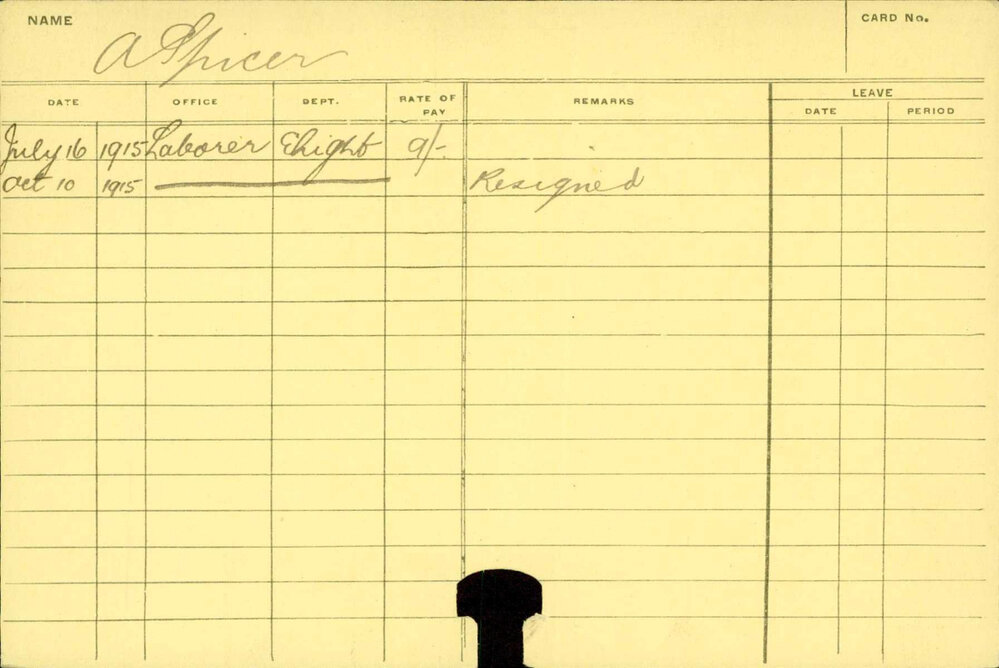 NAME
A Spicer
CARD No.
DATE OFFICE DEPT. RATE OF PAY REMARKS LEAVE
DATE PERIOD
July 16 1915 Laborer Elight 9/-
Oct 10 1915 Resigned